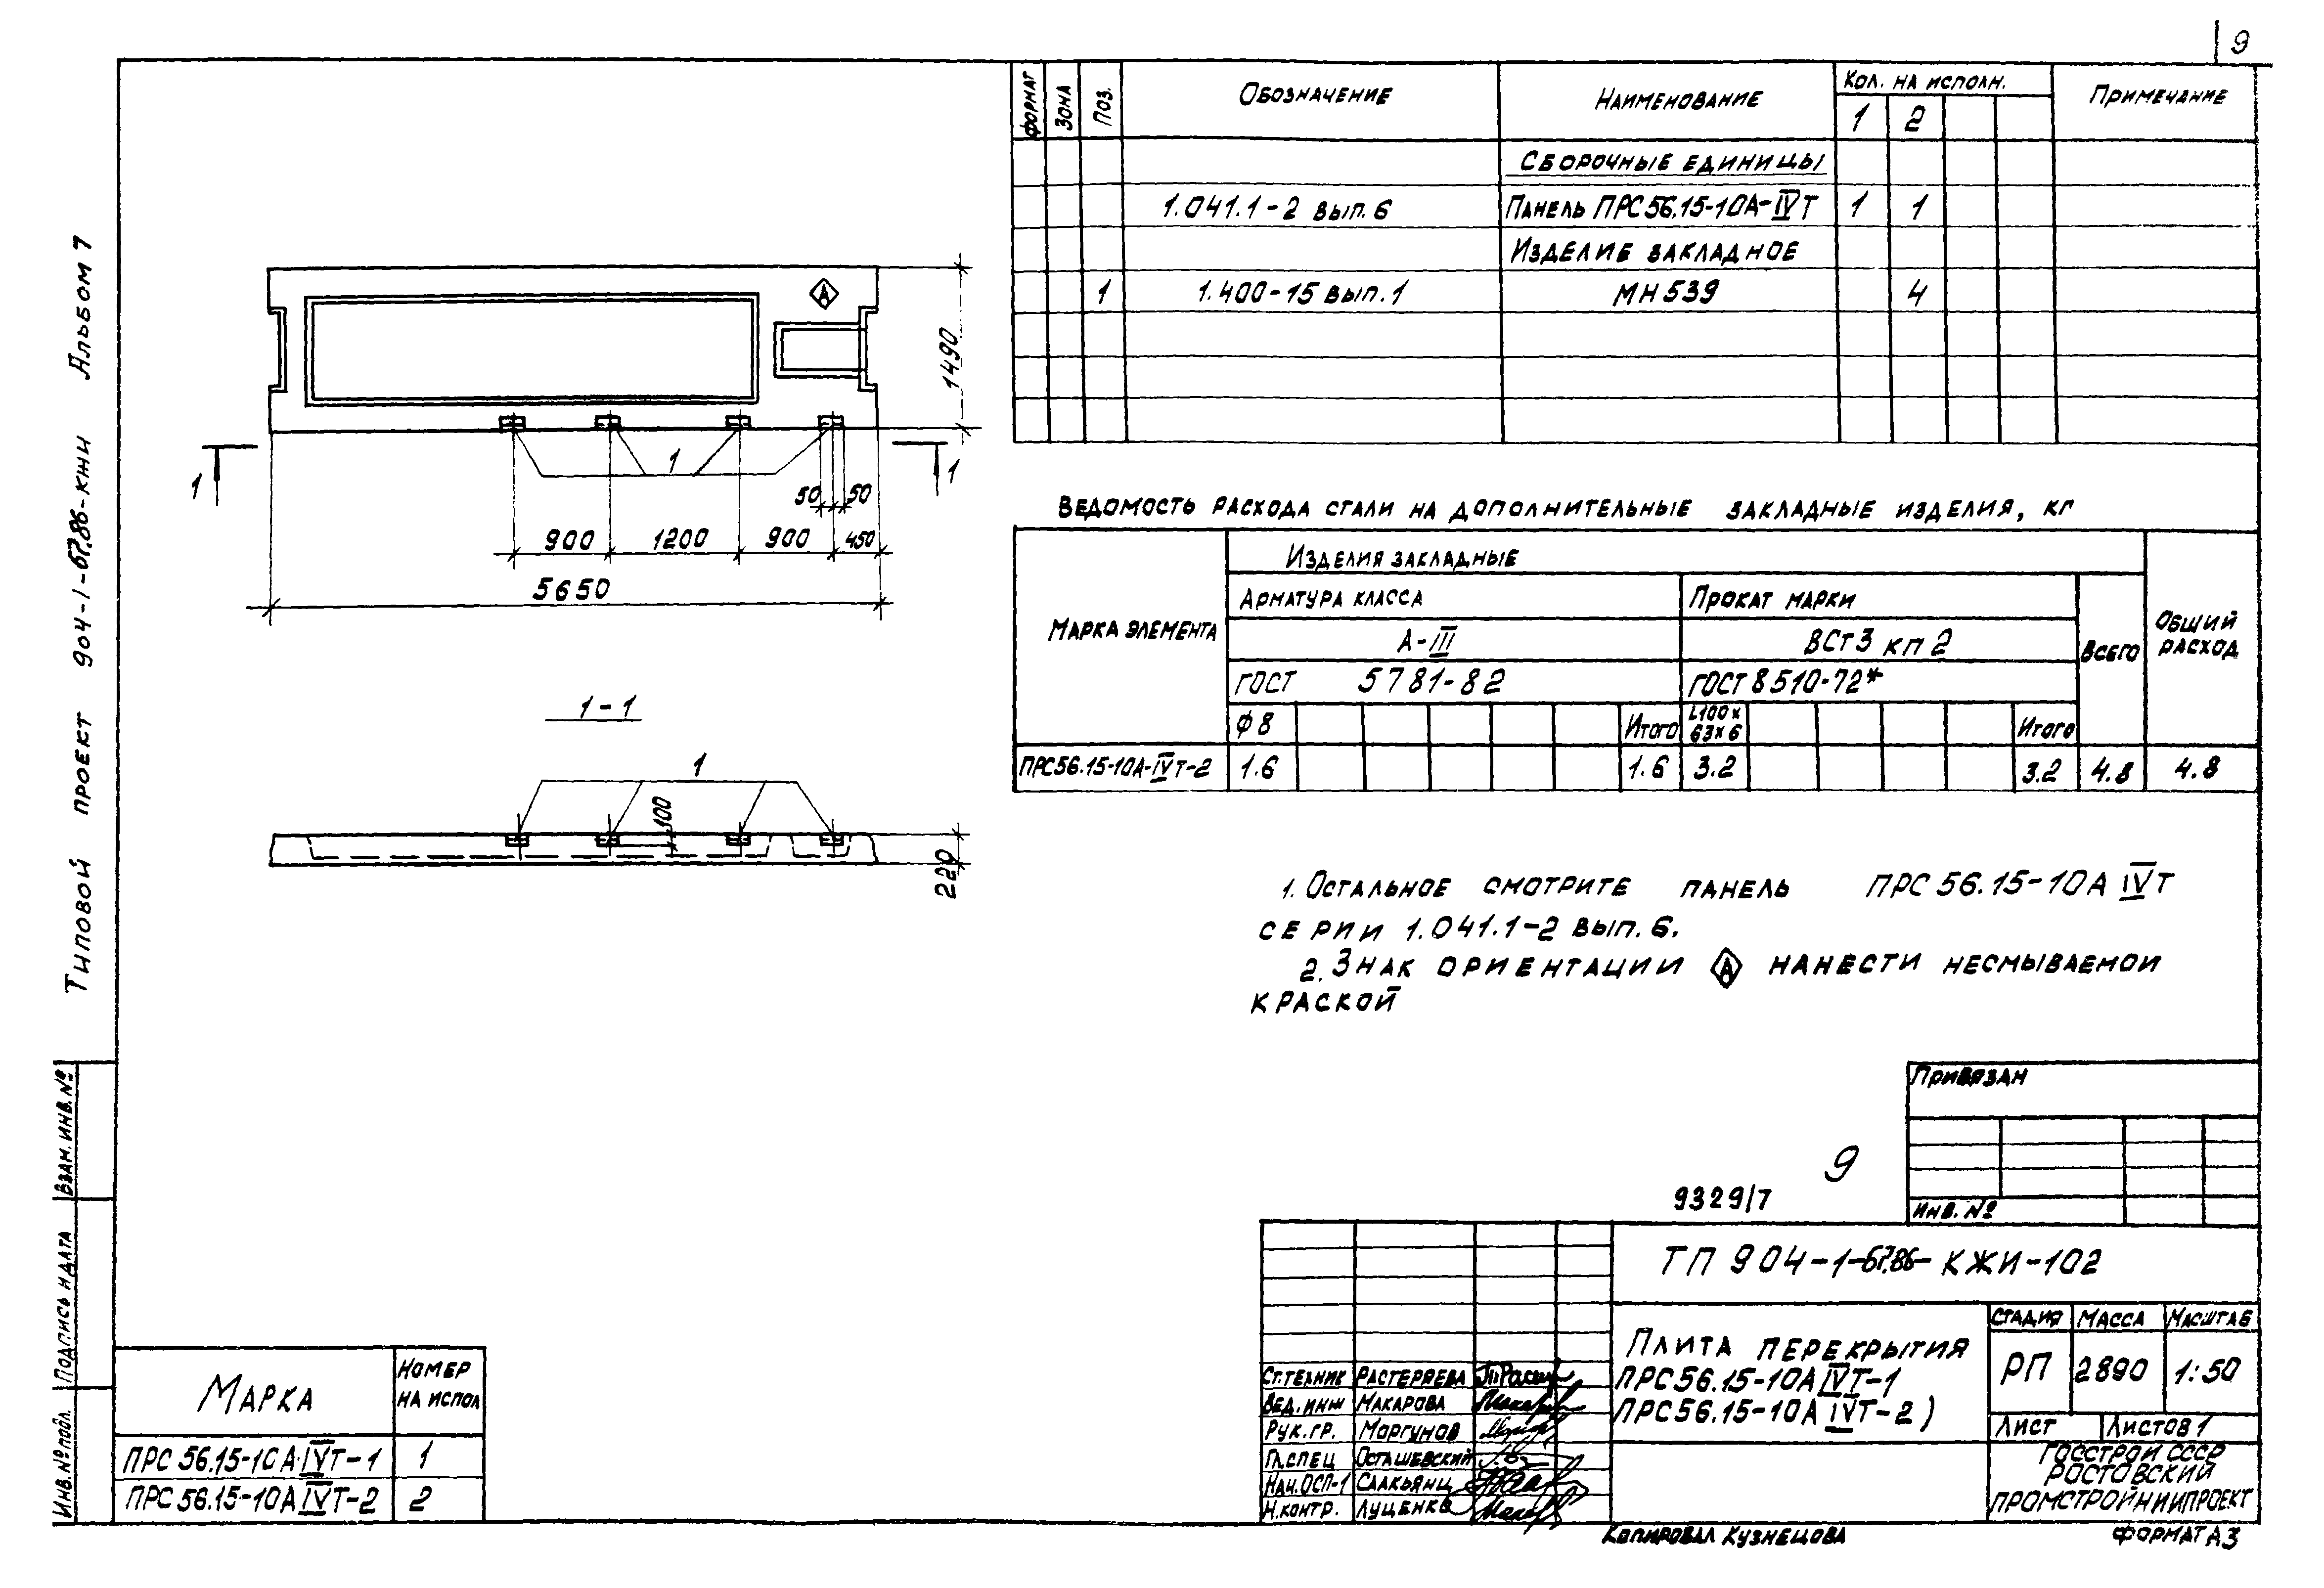 9
Типовой проект 904-1-67.86-КЖИ Альбом 7
1490
1
1
1
50
50
900
1200
900
450
5650
А
1-1
1
100
220
Формат
Зона
Поз.
Обозначение
Наименование
Кол. на исполн.
Примечание
1 2
Сборочные единицы
1.041.1-2 вып. 6 Панель ПРС56.15-10А-IVТ 1 1
Изделие закладное
1 1.400-15 вып. 1 МН539 4
Ведомость расхода стали на дополнительные закладные изделия, кг
Марка элемента
Изделия закладные
Общий расход
Арматура класса
Прокат марки
Всего
А-III
ВСт3 кп 2
ГОСТ 5781-82
ГОСТ 8510-72*
Ф8
Итого
L100х
63х6
Итого
ПРС56.15-10А-IVТ-2 1.6 1.6 3.2 3.2 4.8 4.8
1. Остальное смотрите панель ПРС 56.15-10А IVТ
серии 1.041.1-2 вып. 6.
2. Знак ориентации А нанести несмываемой
краской
Привязан
Инв. №
9
9329/7
ТП 904-1-67.86-КЖИ-102
Плита перекрытия
ПРС56.15-10А IVТ-1
ПРС56.15-10А IVТ-2)
Стадия Масса Масштаб
РП 2890 1:50
Лист Листов 1
Госстрой СССР
Ростовский
Промстройниипроект
Ст.техник Растеряева
Вед. инж Макарова
Рук. гр. Моргунов
Гл.спец Осташевский
Нач.ОСП-1 Саакьянц
Н.контр. Луценко
Марка
Номер
на испол
ПРС 56.15-10А-IVТ-1 1
ПРС 56.15-10А IVТ-2 2
Взам. инв. №
Подпись и дата
Инв. № подл.
Копировал Кузнецова
Формат А3